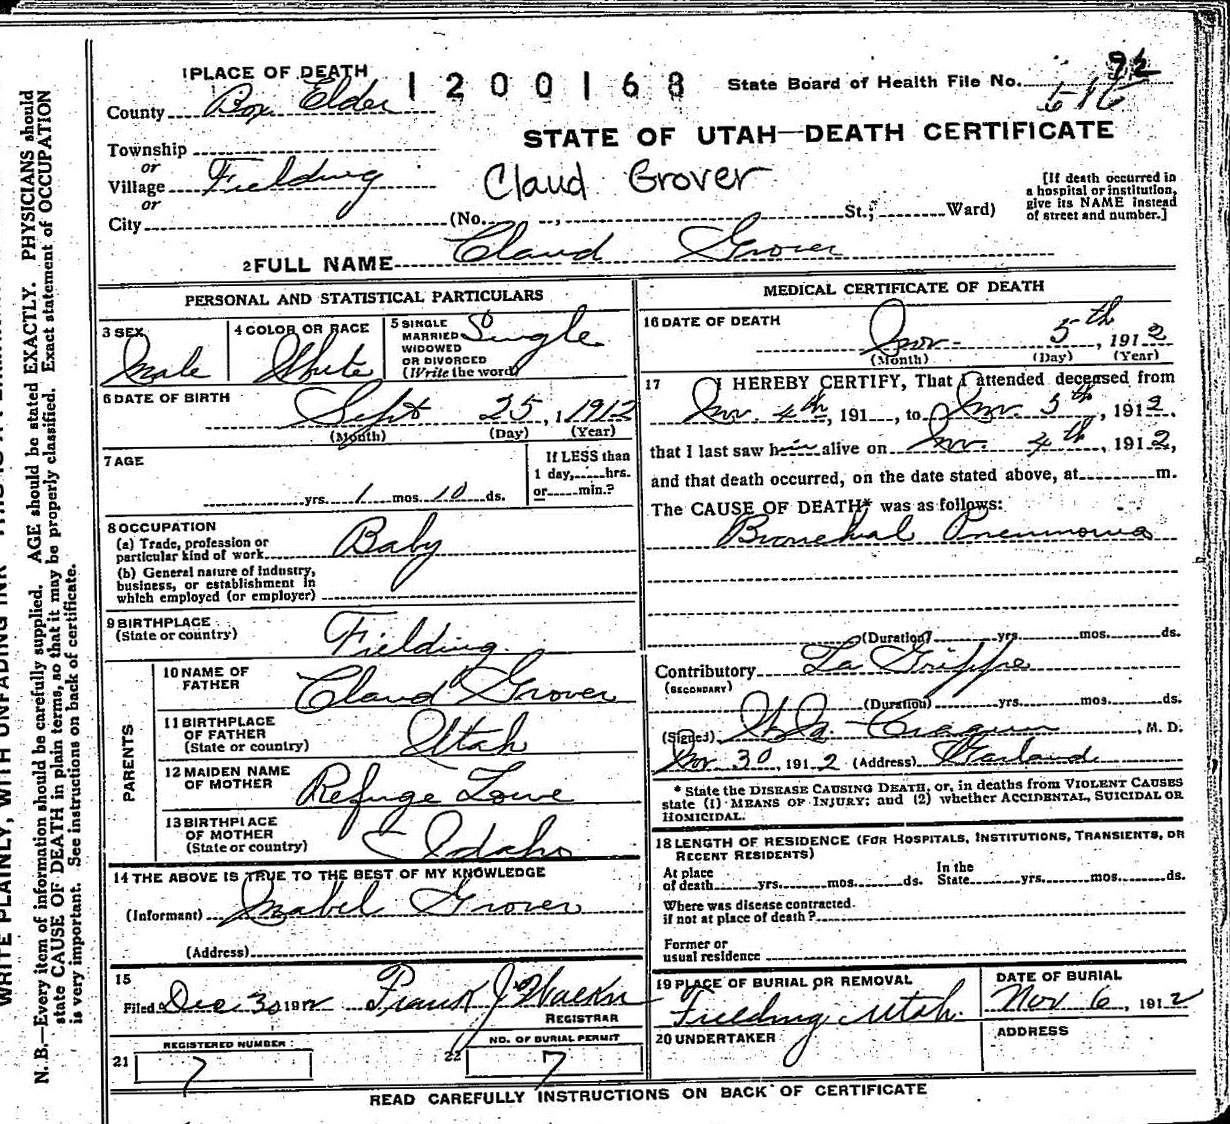 1 PLACE OF DEATH
1200168
State Board of Health File No. 92
516
County Box Elder
STATE OF UTAH—DEATH CERTIFICATE
Township
or
Village Fielding
Claud Grover
[If death occurred in
a hospital or institution,
give its NAME instead
of street and number.]
or
City (No. , St.; Ward)
2 FULL NAME Claud Grover
PERSONAL AND STATISTICAL PARTICULARS
3 SEX Male
4 COLOR OR RACE White
5 SINGLE
MARRIED
WIDOWED
OR DIVORCED
(Write the word) Single
6 DATE OF BIRTH
Sept 25, 1912
(Month) (Day) (Year)
7 AGE
yrs. 1 mos. 10 ds.
If LESS than
1 day, hrs.
or min.?
8 OCCUPATION
(a) Trade, profession or
particular kind of work Baby
(b) General nature of industry,
business, or establishment in
which employed (or employer)
9 BIRTHPLACE
(State or country) Fielding
PARENTS
10 NAME OF
FATHER Claud Grover
11 BIRTHPLACE
OF FATHER
(State or country) Utah
12 MAIDEN NAME
OF MOTHER Refuge Lowe
13 BIRTHPLACE
OF MOTHER
(State or country) Idaho
14 THE ABOVE IS TRUE TO THE BEST OF MY KNOWLEDGE
(Informant) Mabel Grover
(Address)
15
Filed Dec 30 1912 Frank J
REGISTRAR
REGISTERED NUMBER
21 7
NO. OF BURIAL PERMIT
22 7
MEDICAL CERTIFICATE OF DEATH
16 DATE OF DEATH
Nov. 5th, 1912
(Month) (Day) (Year)
17 I HEREBY CERTIFY, That I attended deceased from
Nov. 4th, 191 , to Nov. 5th, 1912,
that I last saw him alive on Nov. 4th, 1912,
and that death occurred, on the date stated above, at m.
The CAUSE OF DEATH* was as follows:
Bronchial Pneumonia
(Duration) yrs. mos. ds.
Contributory La Grippe
(SECONDARY)
(Duration) yrs. mos. ds.
(Signed) Cragun, M. D.
Nov 30, 1912 (Address) Garland
* State the DISEASE CAUSING DEATH, or, in deaths from VIOLENT CAUSES
state (1) MEANS OF INJURY; and (2) whether ACCIDENTAL, SUICIDAL OR
HOMICIDAL.
18 LENGTH OF RESIDENCE (FOR HOSPITALS, INSTITUTIONS, TRANSIENTS, OR
RECENT RESIDENTS)
At place
of death yrs. mos. ds.
In the
State yrs. mos. ds.
Where was disease contracted.
if not at place of death?
Former or
usual residence
19 PLACE OF BURIAL OR REMOVAL
Fielding Utah.
DATE OF BURIAL
Nov 6, 1912
20 UNDERTAKER
ADDRESS
READ CAREFULLY INSTRUCTIONS ON BACK OF CERTIFICATE
WRITE PLAINLY, WITH UNFADING INK
N. B.—Every item of information should be carefully supplied. AGE should be stated EXACTLY. PHYSICIANS should
state CAUSE OF DEATH in plain terms, so that it may be properly classified. Exact statement of OCCUPATION
is very important. See instructions on back of certificate.